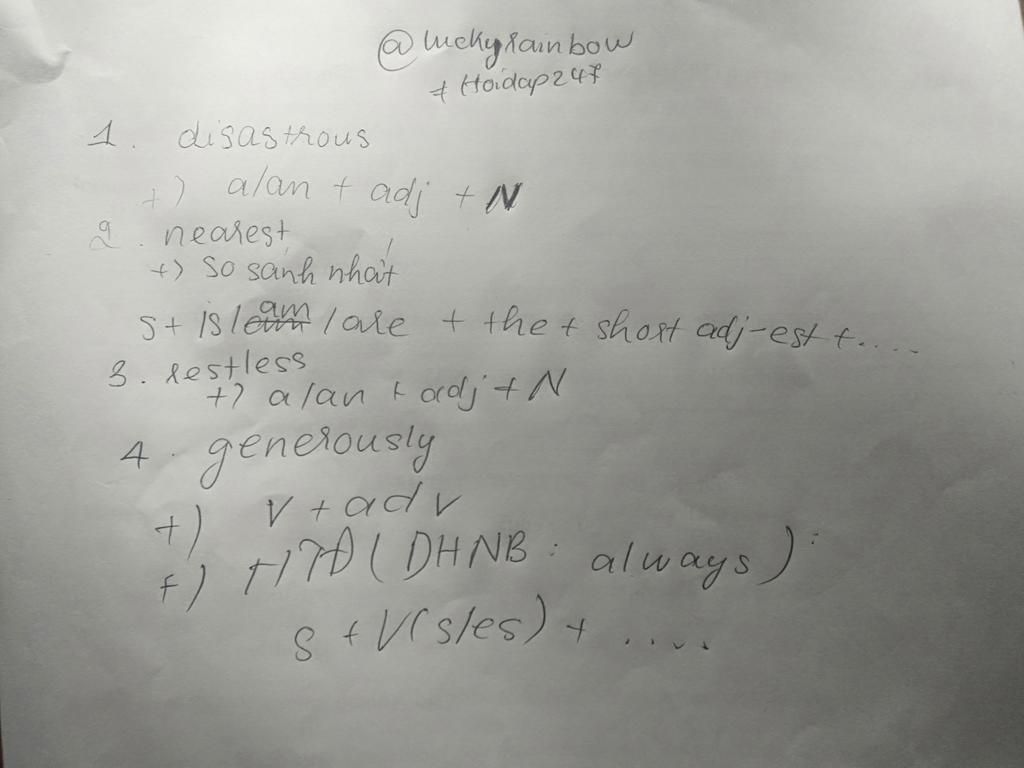 @luckyrainbow
+ Hoidap247
1. disastrous
+) a/an + adj + N
2. nearest
+) So sánh nhất
S + is/am/are + the + short adj-est + ....
3. restless
+) a/an + adj + N
4. generously
+) V + adv
+) HTĐ (DHNB: always):
S + V(s/es) + ....